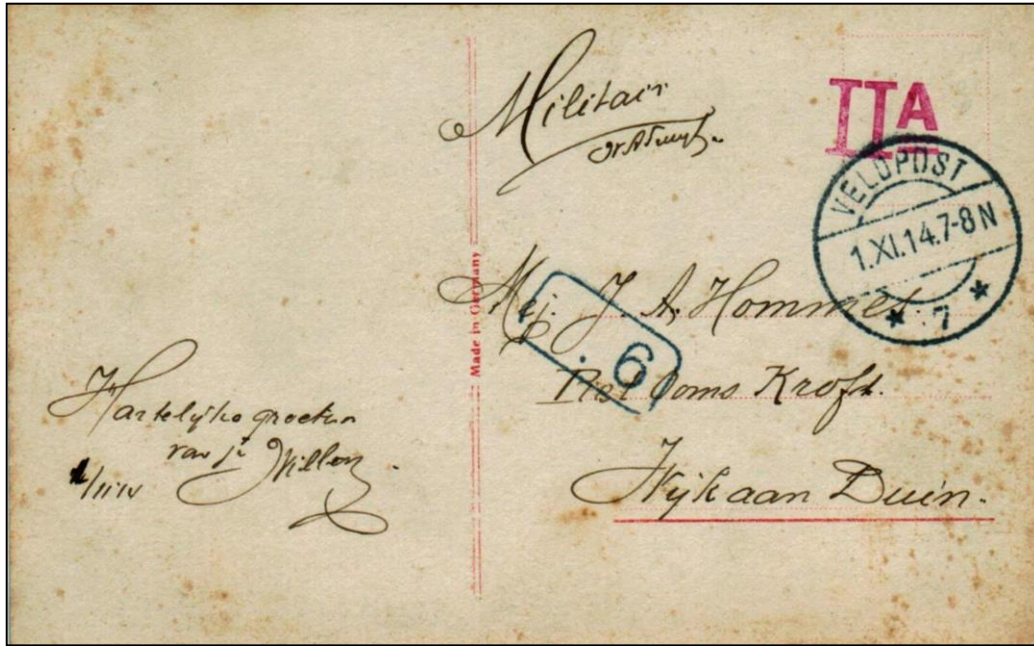 Hartelijke groeten
van je Willem.
1/11/14
Made in Germany
Militair
IIA
VELDPOST
1.XI.14.7-8N
* 7 *
Mej. J. A. Hommes
. 6
Kroft.
Wijk aan Duin.